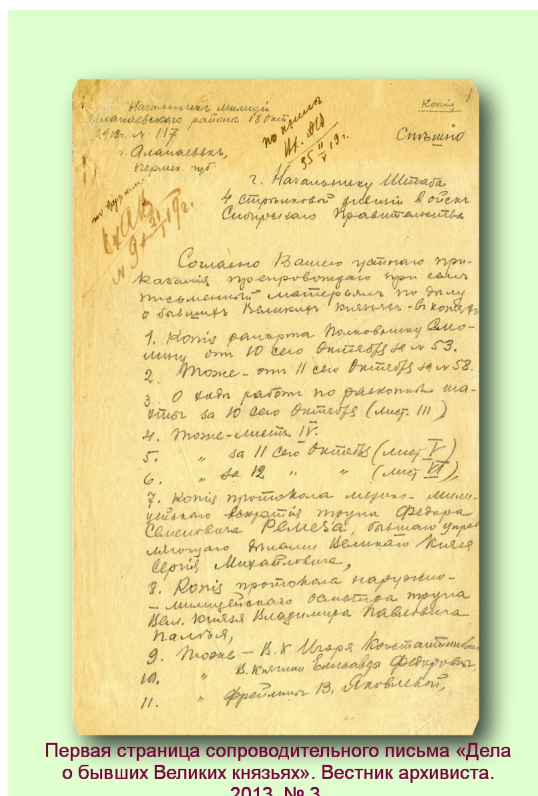 Начальникъ милиціи
Алапаевского района 18 окт.
1918 г. № 117
г. Алапаевскъ,
Пермск. губ.
Копія
Спѣшно
г. Начальнику Штаба
4 стрѣлковой дивизіи войскъ
Сибирскаго Правительства
Согласно Вашего устнаго при-
казанія препровождаю при семъ
письменный матерьялъ по дѣлу
о бывшихъ Великихъ князьяхъ - въ копіяхъ
1. Копія рапорта Полковнику Смо-
лину отъ 10 сего Октября за № 53.
2. Тоже - отъ 11 сего Октября за № 58.
3. О ходѣ работъ по раскопкѣ ша-
хты за 10 сего Октября (лист. III)
4. Тоже - листъ IV.
5. " за 11 сего Октября (лист V)
6. " за 12 " " (лист VI),
7. Копія протокола медико-мили-
цейскаго вскрытія трупа Федора
Семеновича Ремеза, бывшаго упра
вляющаго дѣлами Великаго Князя
Сергія Михайловича,
8. Копія протокола наружно-
-милицейскаго осмотра трупа
Вел. Князя Владимира Павловича
Палѣя,
9. Тоже - В.К Игоря Константинови
10. " В. Княгини Елисаветы Федоровны
11. " Фрейлины В. Яковлевой,
Первая страница сопроводительного письма «Дела
о бывших Великих князьях». Вестник архивиста.
2013. № 3